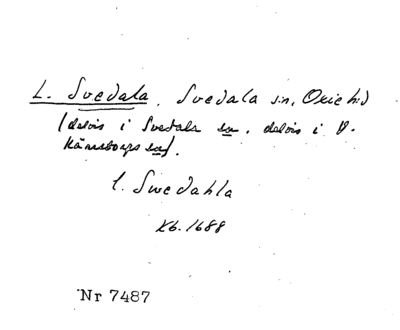 L. Svedala, Svedala sn, Oxie hd
(delvis i Svedala sn, delvis i V.
Kärrstorps sn).
l. Swedahla
Kb. 1688
Nr 7487